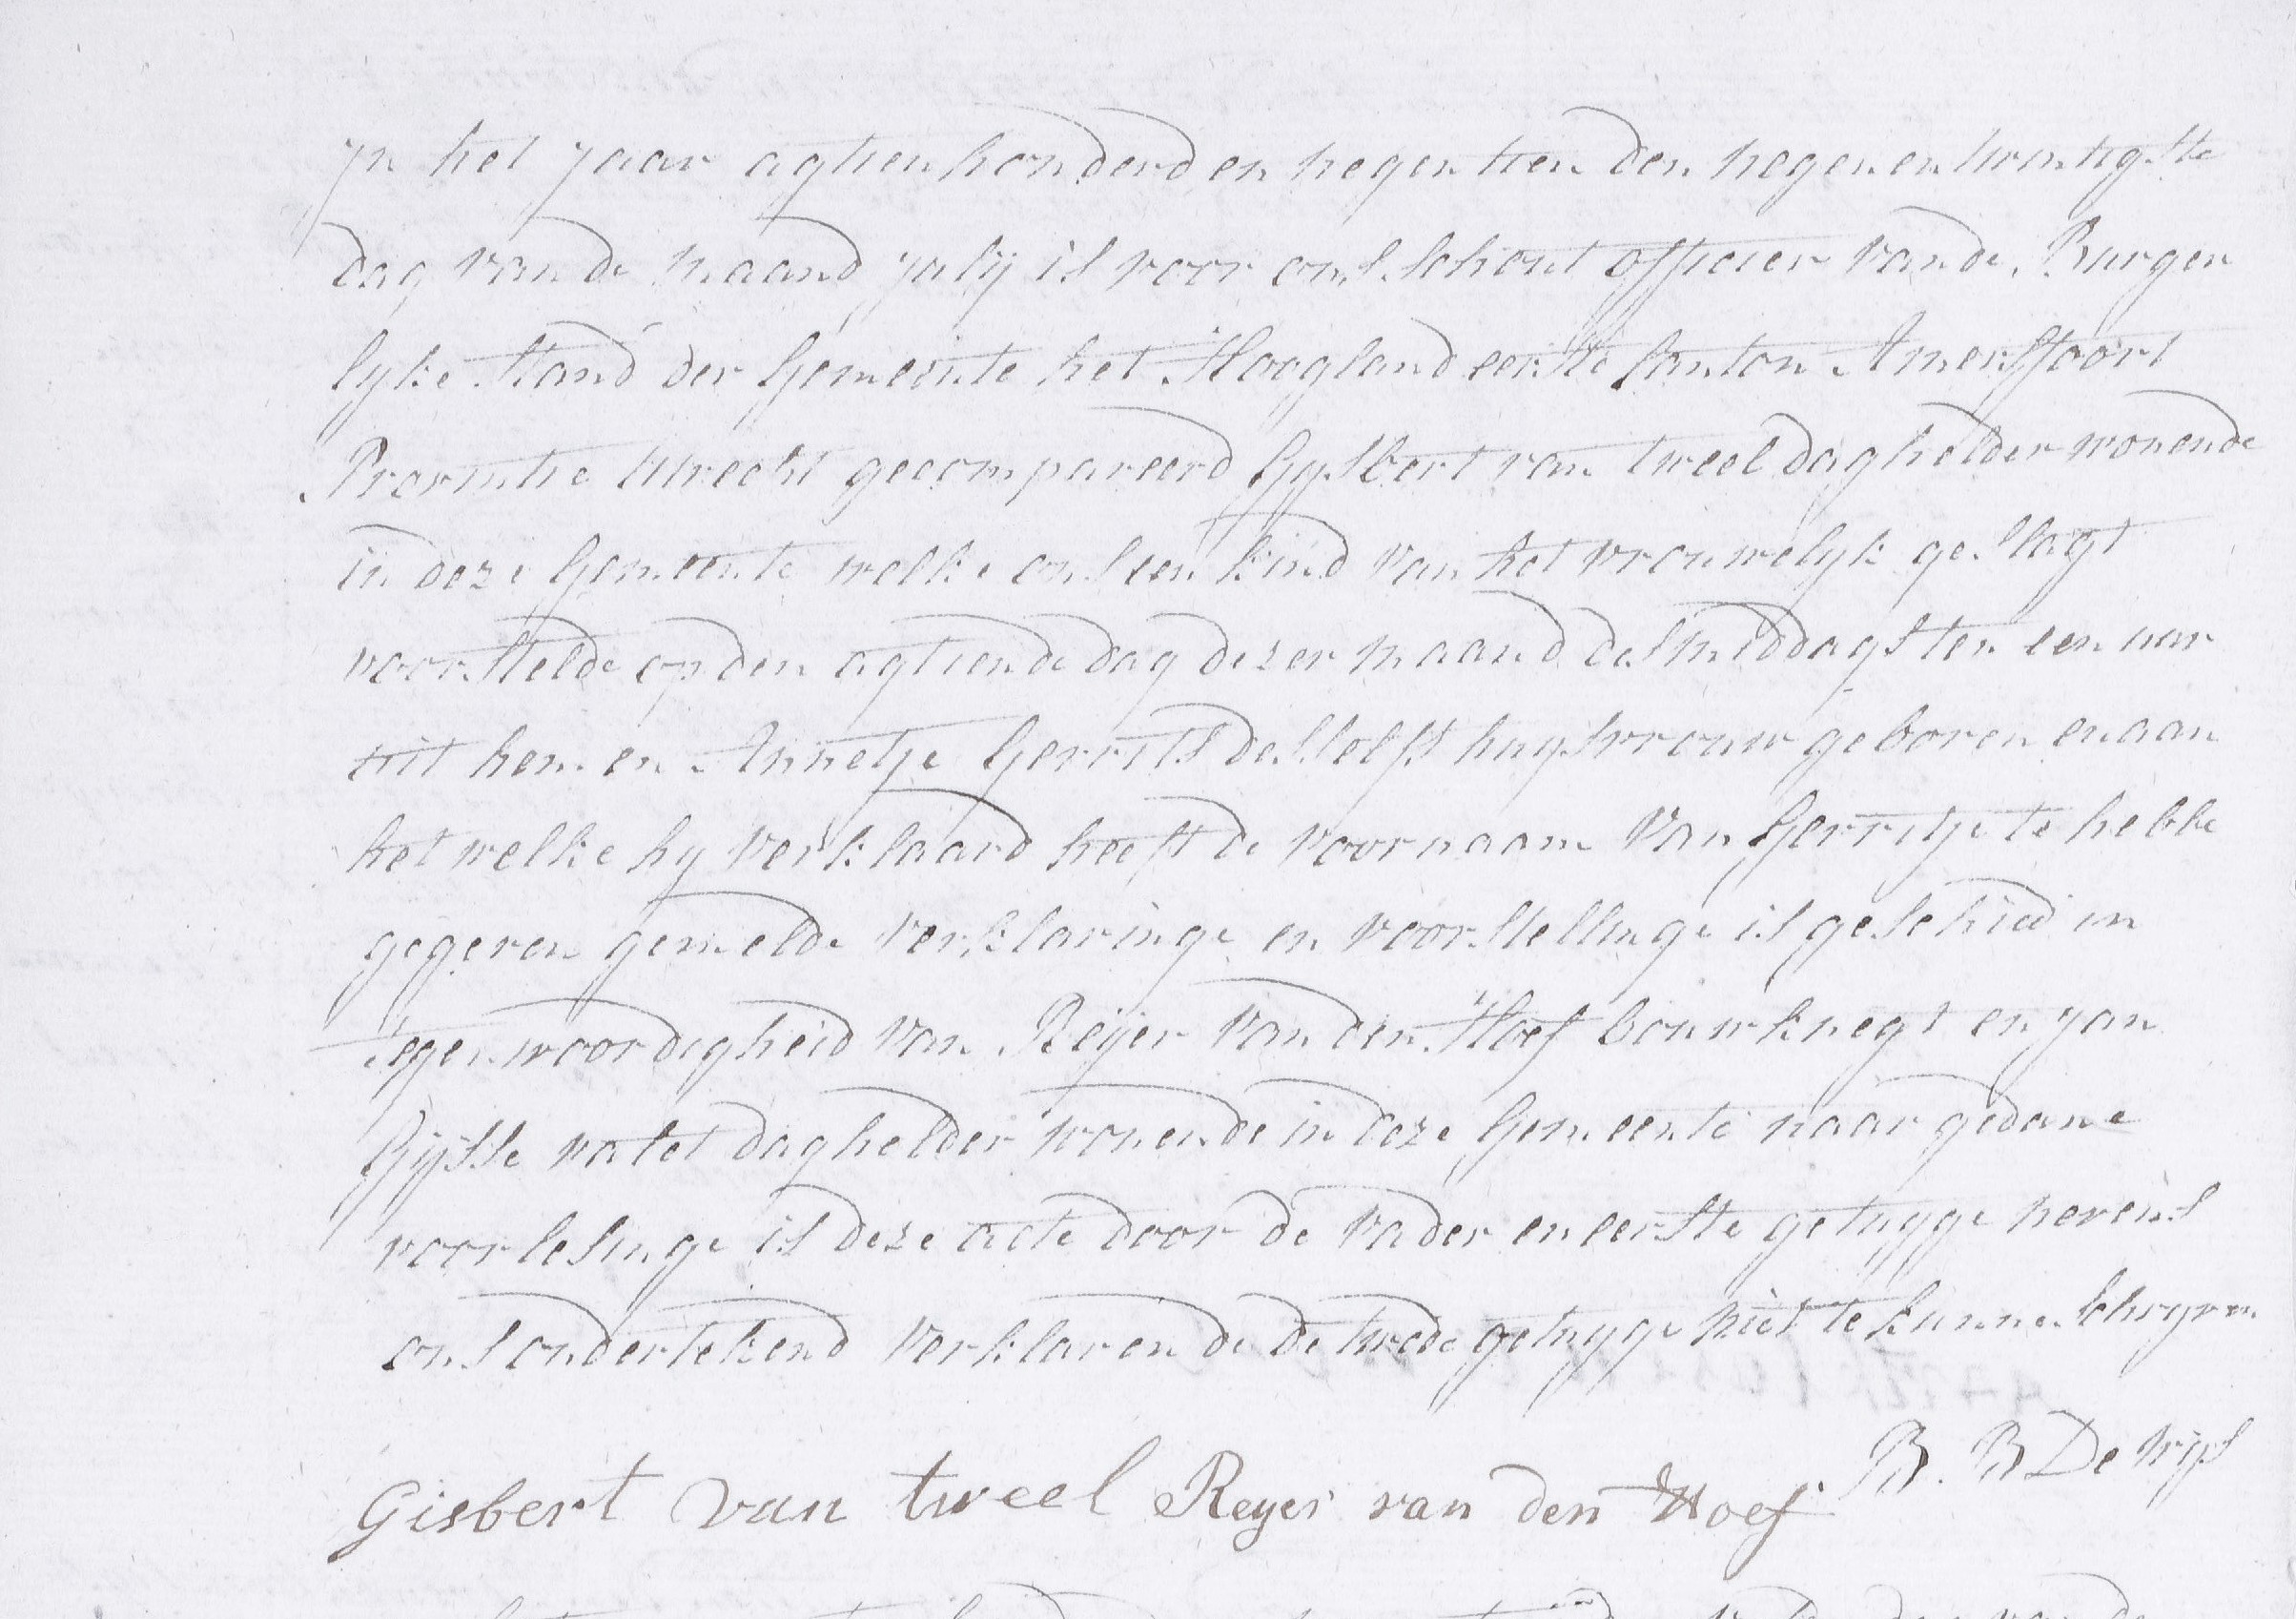 yn het jaar agtienhonderd en negentien den negenentwintigste
dag van de maand july is voor ons schout officier van de Burger
lyke stand der Gemeente het Hoogland eerste Canton Amersfoort
Provintie Utrecht gecompareerd Gysbert van tweel daghelder wonende
in deze Gemeente welke ons een kind van het vrouwelyk geslagt
voorstelde op den agtiende dag dezer maand des middags ten een uur
uit hem en Annetje Gerrits deszelfs huysvrouw geboren en aan
het welke hy verklaard heeft de voornaam van Gerritje te hebbe
gegeven gemelde verklaringe en voorstellinge is geschied in
tegenwoordigheid van Reijer van den Hoef bouwknegt en yan
Gijsse daghelder wonende in deze Gemeente naar gedane
voorlesinge is deze acte door de vader en eerste getuyge nevens
ons ondertekend verklarende de twede getuyge niet te kunnen schryven
B. B De Wijs
Gisbert van tweel Reyer van den Hoef